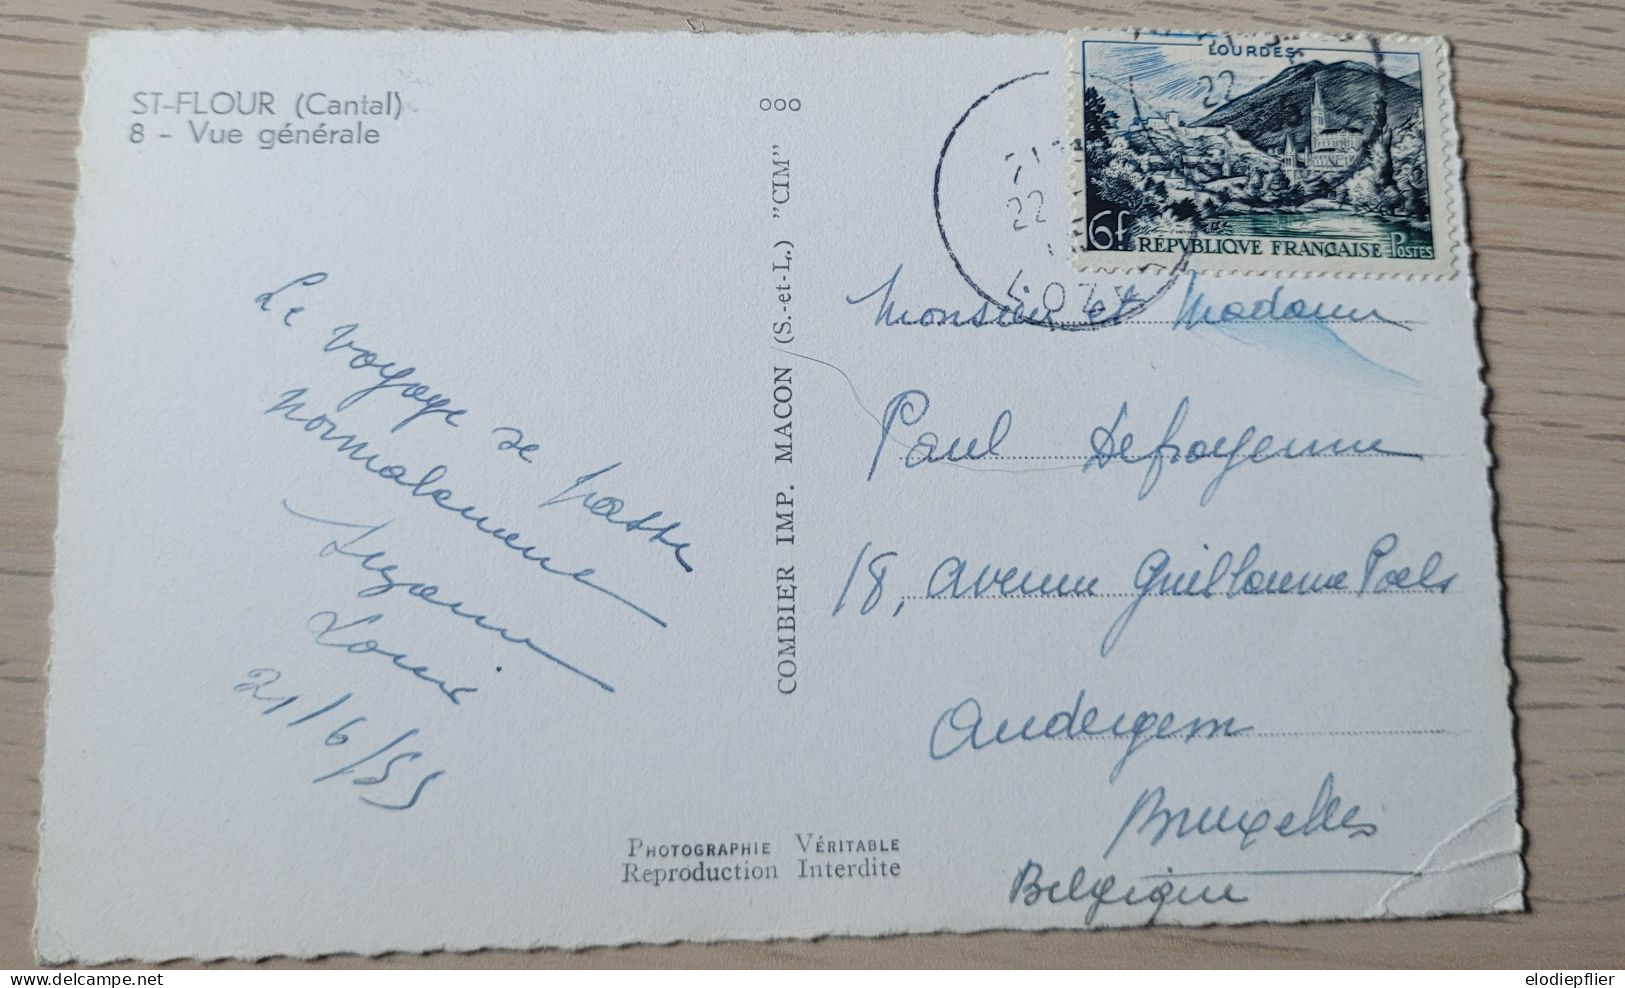 ST-FLOUR (Cantal)
8 - Vue générale
Le voyage se passe
normalement
Suzanne
Louis
21/6/55
COMBIER IMP. MACON (S.-et-L.) "CIM"
PHOTOGRAPHIE VÉRITABLE
Reproduction Interdite
LOURDES
6f
RÉPVBLIQVE FRANÇAISE POSTES
22
22
Monsieur et Madame
Paul Defrayenne
18, avenue Guillaume Poels
Auderghem
Bruxelles
Belgique
elodiepflier